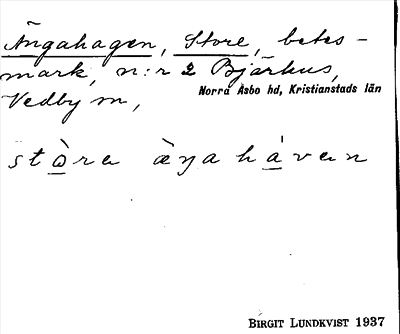 Ängahagen, Store, betes-
mark, n:r 2 Bjärhus,
Vedby sn,
Norra Åsbo hd, Kristianstads län
stòra àŋahávan
BIRGIT LUNDKVIST 1937